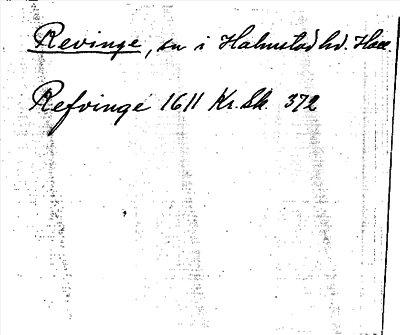 Revinge, sn i Halmstad hd. Hall
Refvinge 1611 Kr. Sk. 372